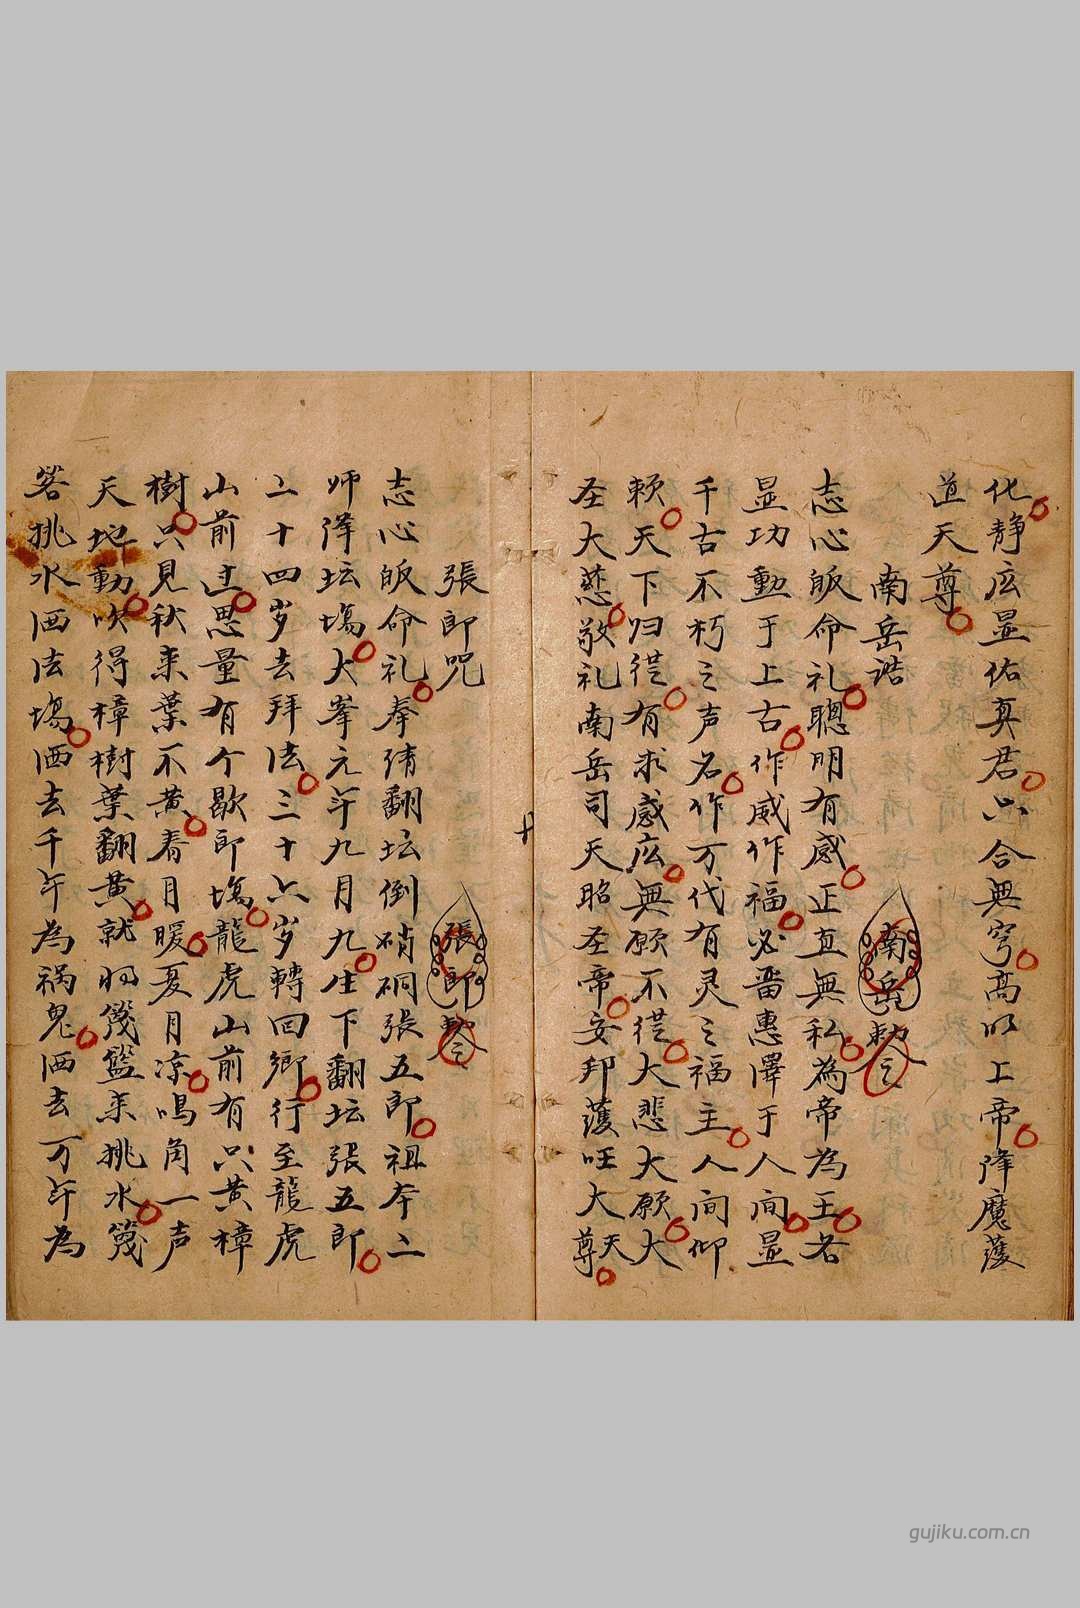 化静応显佑真君六合無穹高明上帝降魔護
道天尊
南岳誥
南岳勅令
志心皈命礼聰明有感正直無私為帝為王名
显功勳于上古作威作福必畨惠澤于人间显
千古不朽之声名作万代有灵之福主人间仰
頼天下归從有求感応無願不從大悲大願大
圣大慈敬礼南岳司天昭圣帝安邦護旺大天尊
張郎咒
張郎勅令
志心皈命礼奉請翻坛倒硝硐張五郎祖本二
师得坛塲大峯元年九月九生下翻坛張五郎
二十四岁去拜法三十六岁轉回鄉行至龍虎
山前过思量有个歇郎塲龍虎山前有只黄樟
樹只見秋来葉不黄春月暖夏月凉鳴角一声
天地動吹得樟樹葉翻黄就将篾籃来挑水篾
笿挑水洒法塲洒去千年為祸鬼洒去万年為
gujiku.com.cn